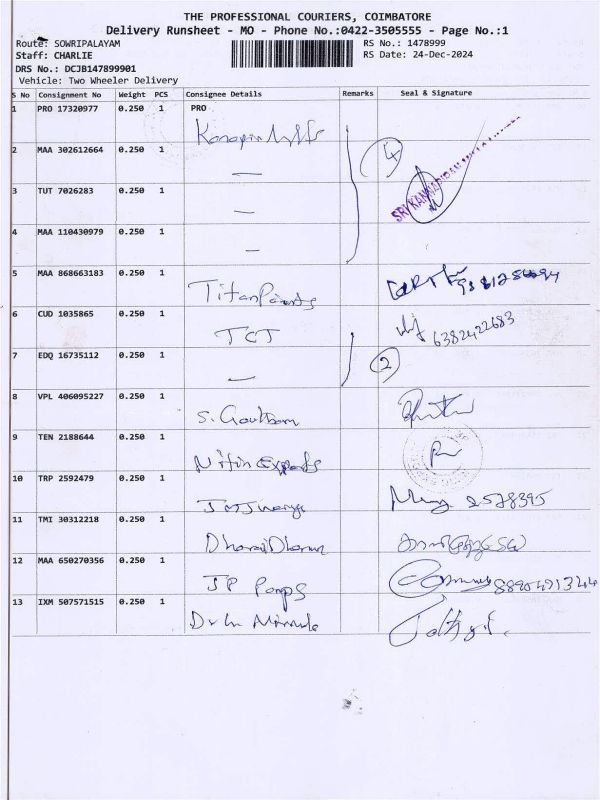 THE PROFESSIONAL COURIERS, COIMBATORE
Delivery Runsheet - MO - Phone No.:0422-3505555 - Page No.:1
Route: SOWRIPALAYAM RS No.: 1478999
Staff: CHARLIE RS Date: 24-Dec-2024
DRS No.: DCJB147899901
Vehicle: Two Wheeler Delivery
S No Consignment No Weight PCS Consignee Details Remarks Seal & Signature
1 PRO 17320977 0.250 1 PRO
2 MAA 302612664 0.250 1 4
3 TUT 7026283 0.250 1
4 MAA 110430979 0.250 1
5 MAA 868663183 0.250 1 Titan Paints
6 CUD 1035865 0.250 1 TCT 6382422683
7 EDQ 16735112 0.250 1 2
8 VPL 406095227 0.250 1 S. Goutham
9 TEN 2188644 0.250 1 Nitin Exports
10 TRP 2592479 0.250 1 2578395
11 TMI 30312218 0.250 1
12 MAA 650270356 0.250 1 JP Pumps
13 IXM 507571515 0.250 1